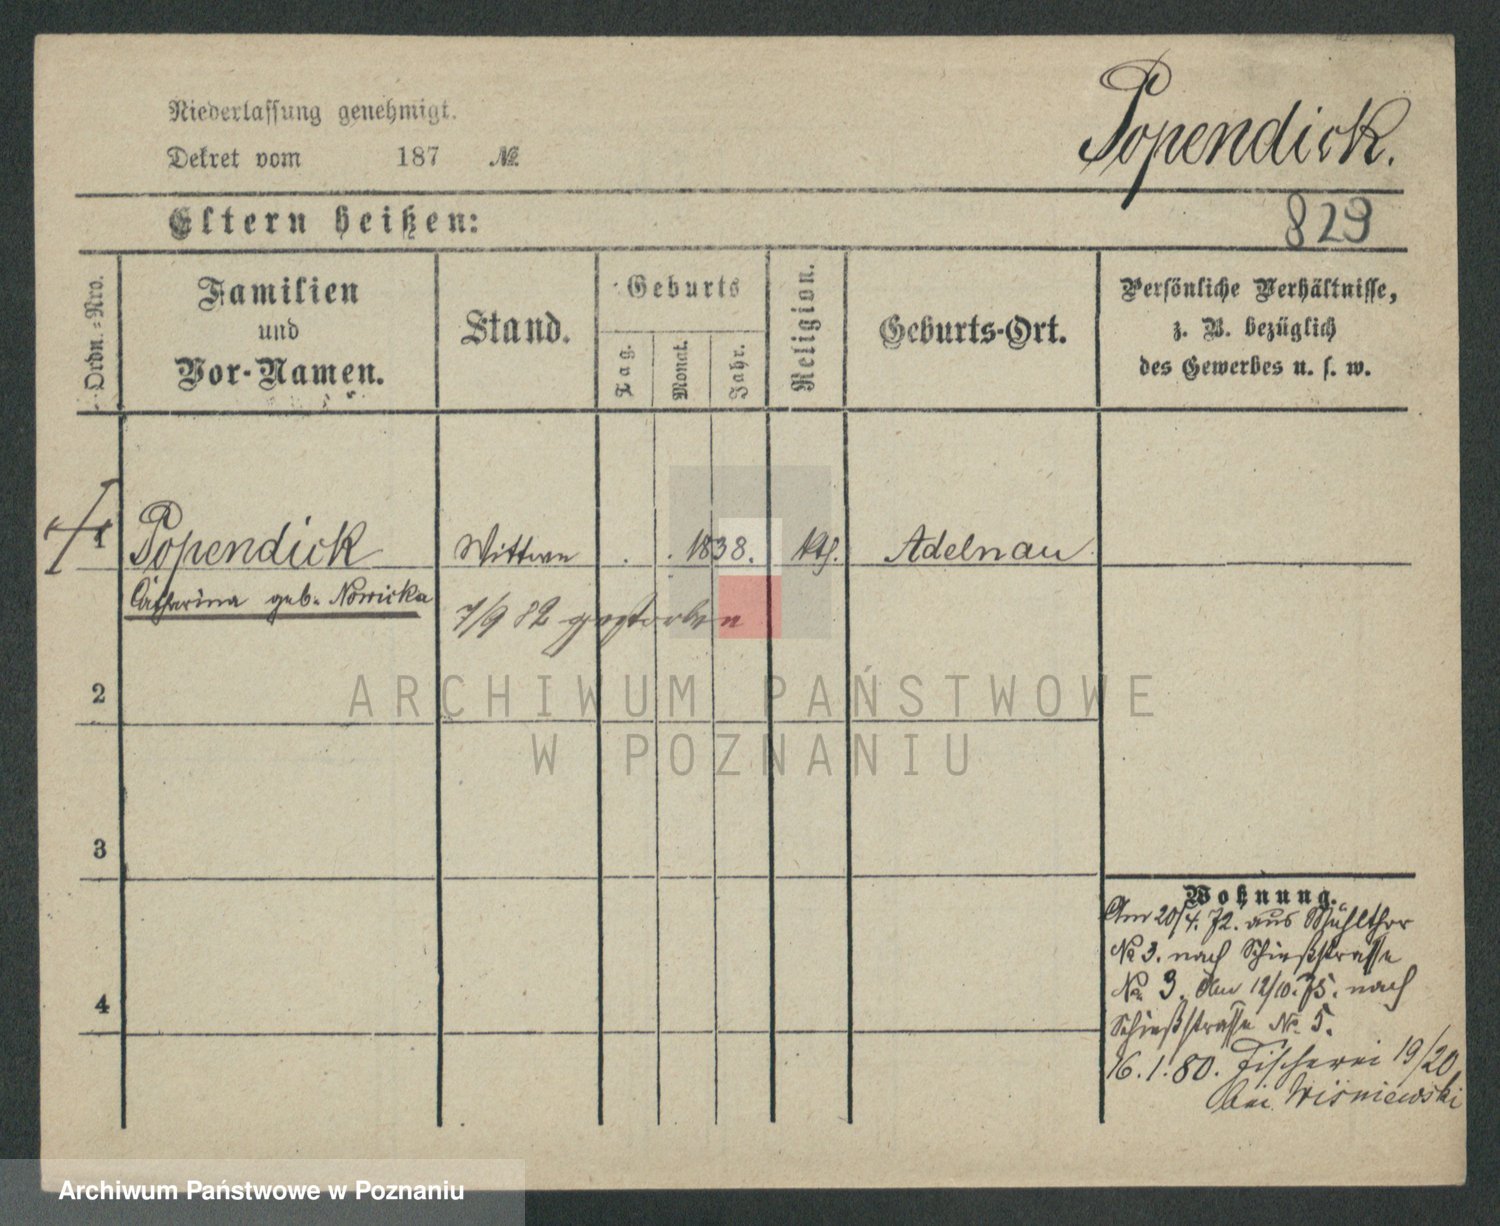 Niederlassung genehmigt.
Dekret vom 187 №
Popendick.
829
Eltern heißen:
Ordn.-Nro.
Familien
und
Vor-Namen.
Stand.
Geburts
Tag.
Monat.
Jahr.
Religion.
Geburts-Ort.
Persönliche Verhältnisse,
z. B. bezüglich
des Gewerbes u. s. w.
1 Popendick Wittwe . . 1838. kth. Adelnau
Catharina geb. Nowicka
7/9 82 gestorben
2
ARCHIWUM PAŃSTWOWE
W POZNANIU
3
4
Wohnung.
Am 20/4. 72. aus Mühlthor
№ 3. nach Schießstrasse
№ 3. Am 12/10. 75. nach
Schießstrasse № 5.
16. 1. 80. Fischerei 19/20
bei Wiśniewski
Archiwum Państwowe w Poznaniu